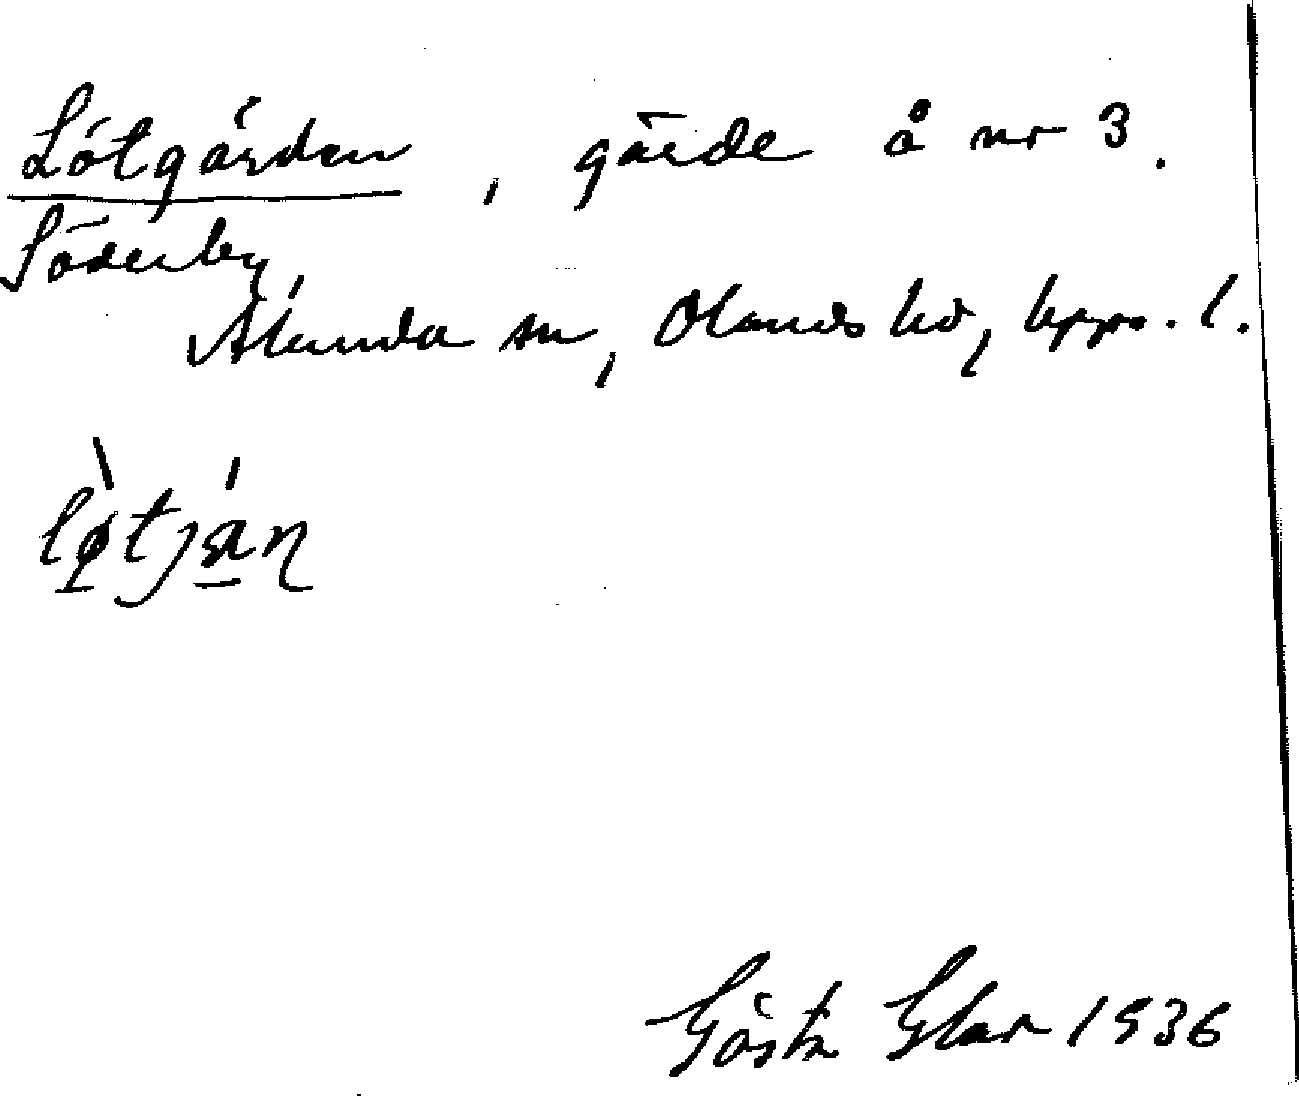 Lötgärden, gärde å nr 3.
Söderby,
Alunda sn, Olands hd, Upps. l.
Gösta Glar 1936